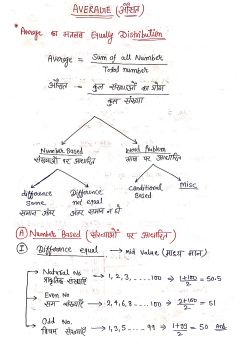 AVERAGE (औसत)
* Average का मतलब Equally Distribution
Average = Sum of all Number
Total number
औसत = कुल संख्याओं का योग
कुल संख्या
Number Based
संख्याओं पर आधारित
Word Problem
भाषा पर आधारित
difference same
समान अंतर
Difference not equal
अंतर समान न हो
Conditional Based
Misc
(A) Number Based (संख्याओं पर आधारित)
(I) Difference equal → mid Value (माध्य मान)
Natural No → 1, 2, 3, ..... 100 → 1+100/2 = 50.5
प्राकृतिक संख्याएं
Even No → 2, 4, 6, 8 .... 100 → 2+100/2 = 51
सम संख्याएं
Odd No. → 1, 3, 5 .... 99 → 1+99/2 = 50 Ans
विषम संख्याएं